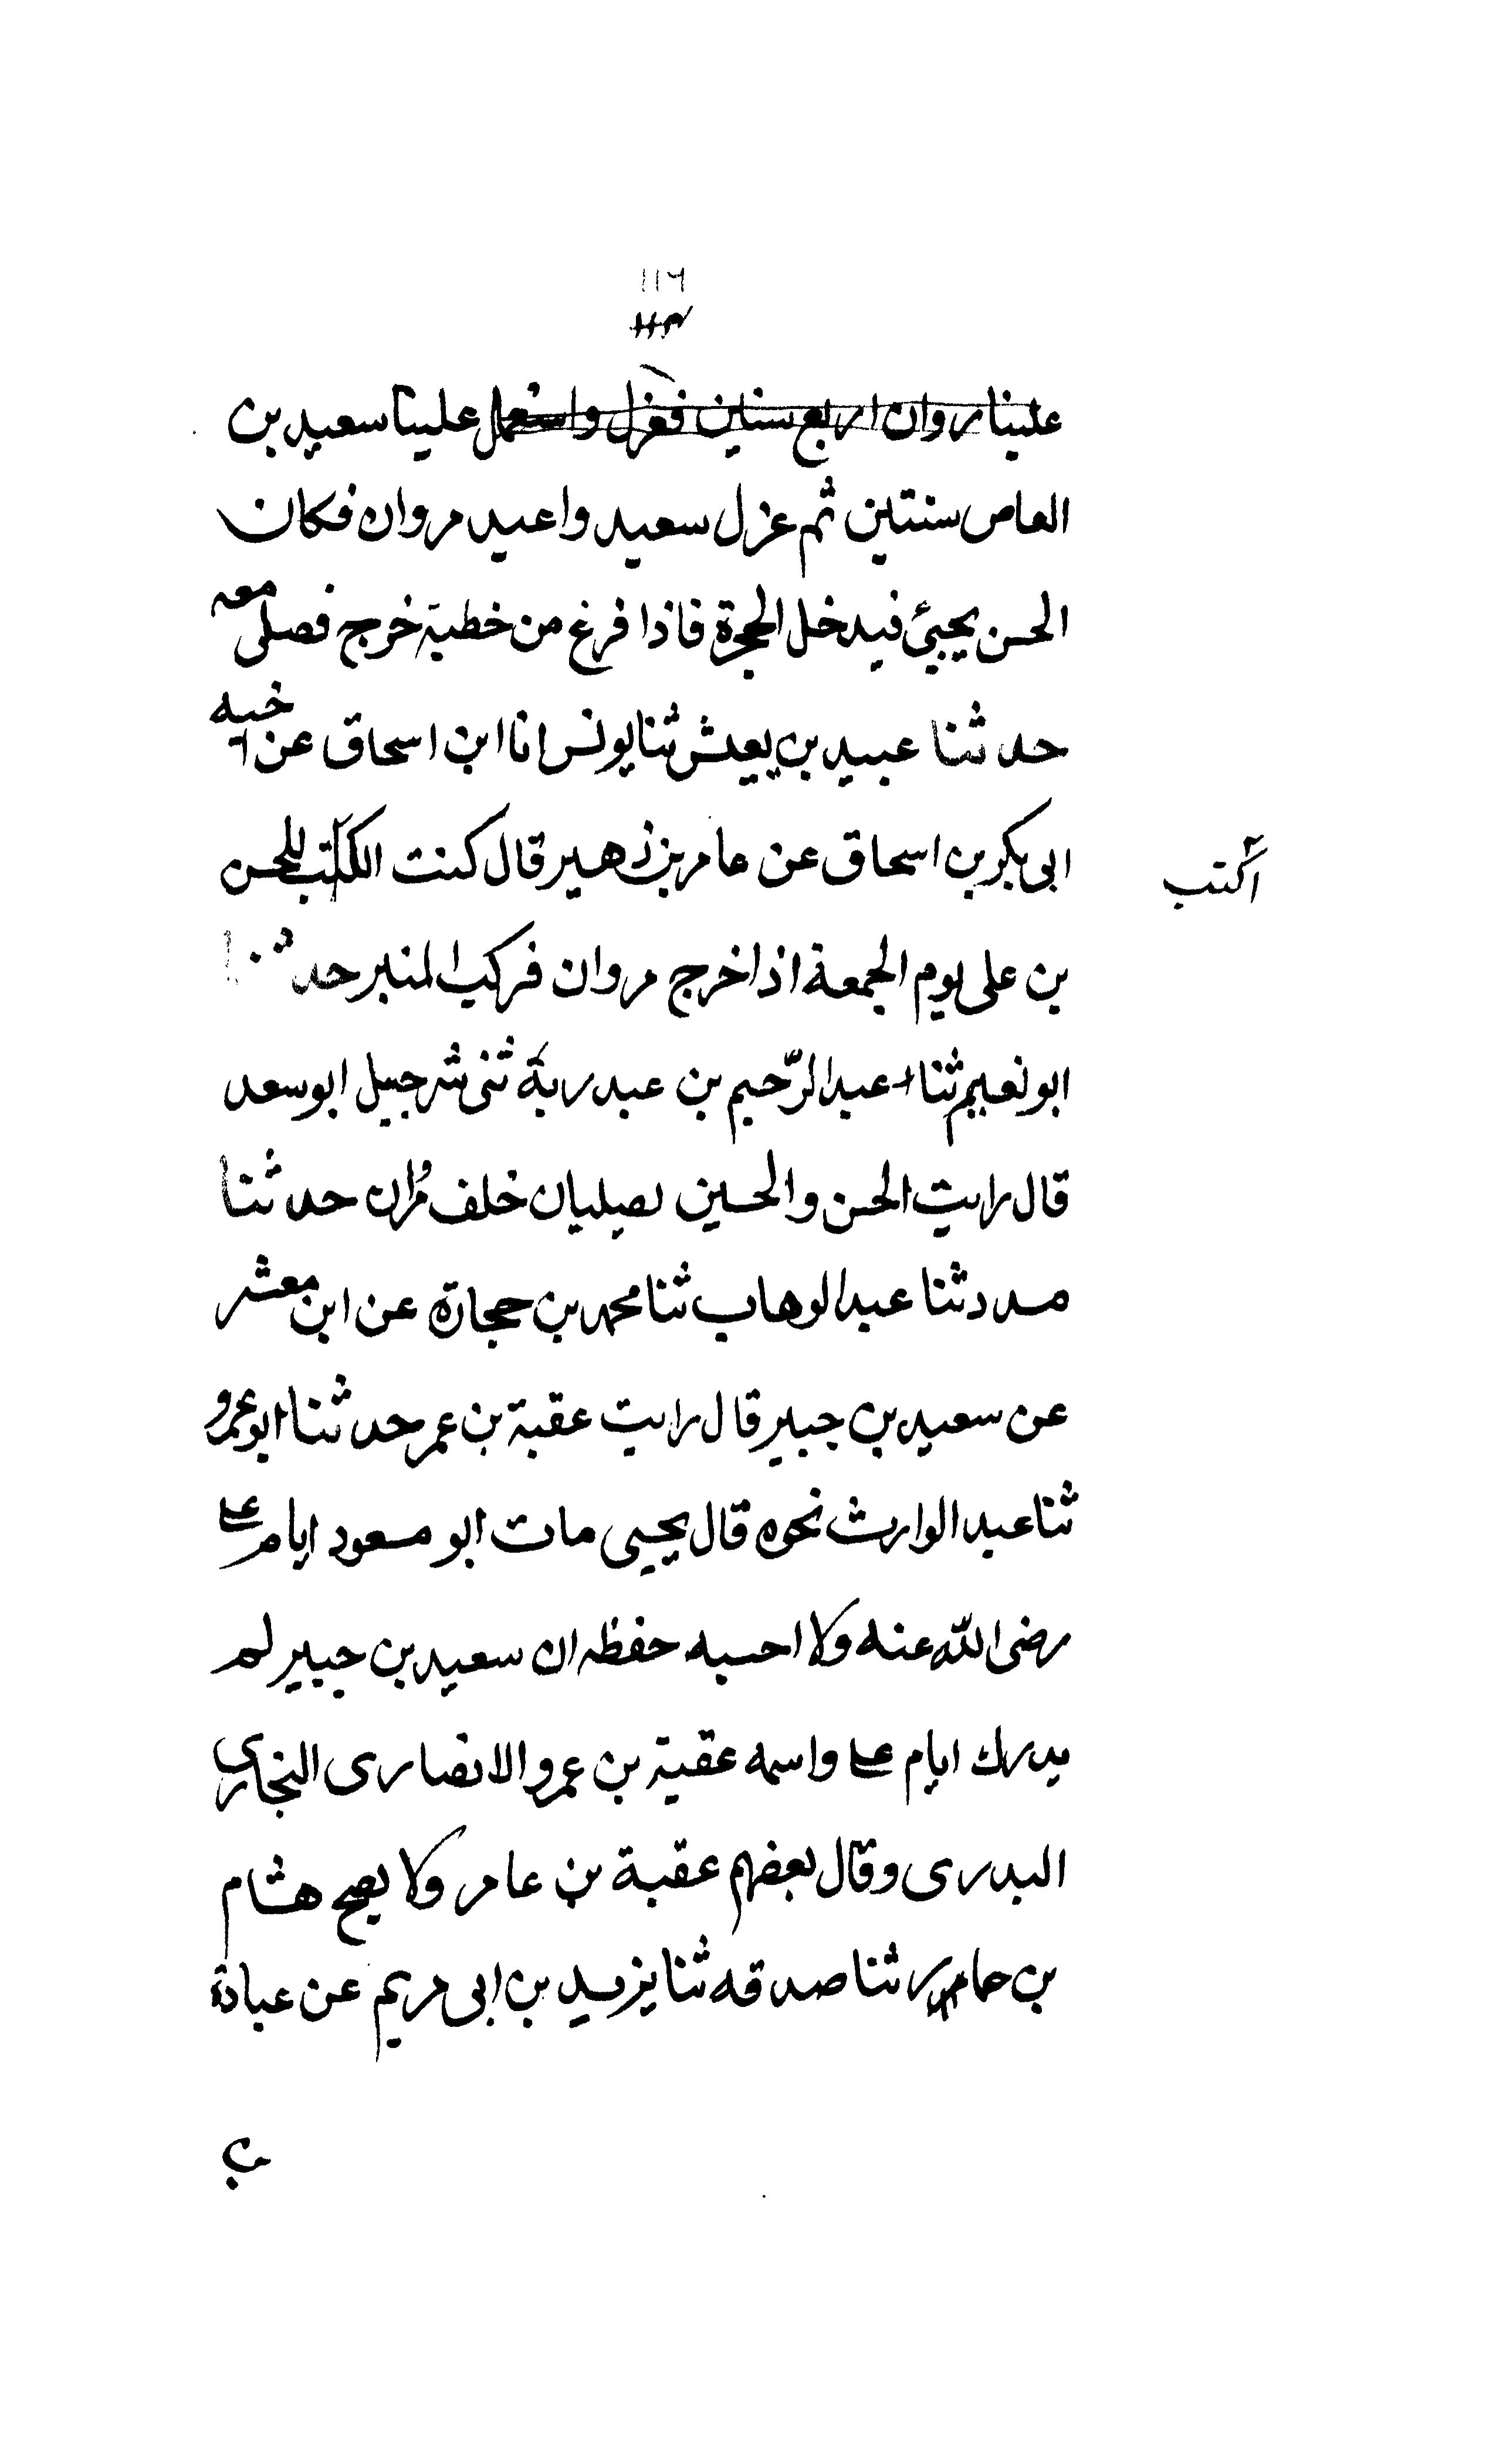 ١١٦
علينا مروان اربع سنين فعزل واستعمل علينا سعيد بن
العاص سنتين ثم عزل سعيد واعيد مروان فكان
الحسن يحيئ فيدخل الحجرة فاذا فرغ من خطبة خرج فصلى معه
حدثنا عبيد بن يعيش ثنا يونس انا ابن اسحاق عن اخيه
ابى بكر بن اسحاق عن عامر بن زهير قال كنت اكتب للحسن
اكتب
بن على يوم الجمعة اذا خرج مروان فركب المنبر حدثنا
ابو نعيم ثنا عبد الرّحيم بن عبد ربة ثنى شرجبيل ابو سعد
قال رايت الحسن والحسين يصليان خلف مران حدثنا
مسدد ثنا عبد الوهاب ثنا محمد بن حجارة عن ابن معشر
عن سعيد بن جبير قال رايت عقبة بن عمر حدثنا ابو عمرو
ثنا عبد الوارث نحوه قال يحيى مات ابو مسعود ايام على
رضى الله عنه ولا احسبه حفظه ان سعيد بن جبير لم
يدرك ايام على واسمه عقبة بن عمرو الانصارى النجارى
البدرى وقال بعضهم عقبة بن عامر ولا يصح هشام
بن عمار ثنا صدقه ثنا يزيد بن ابى مريم عن عباده